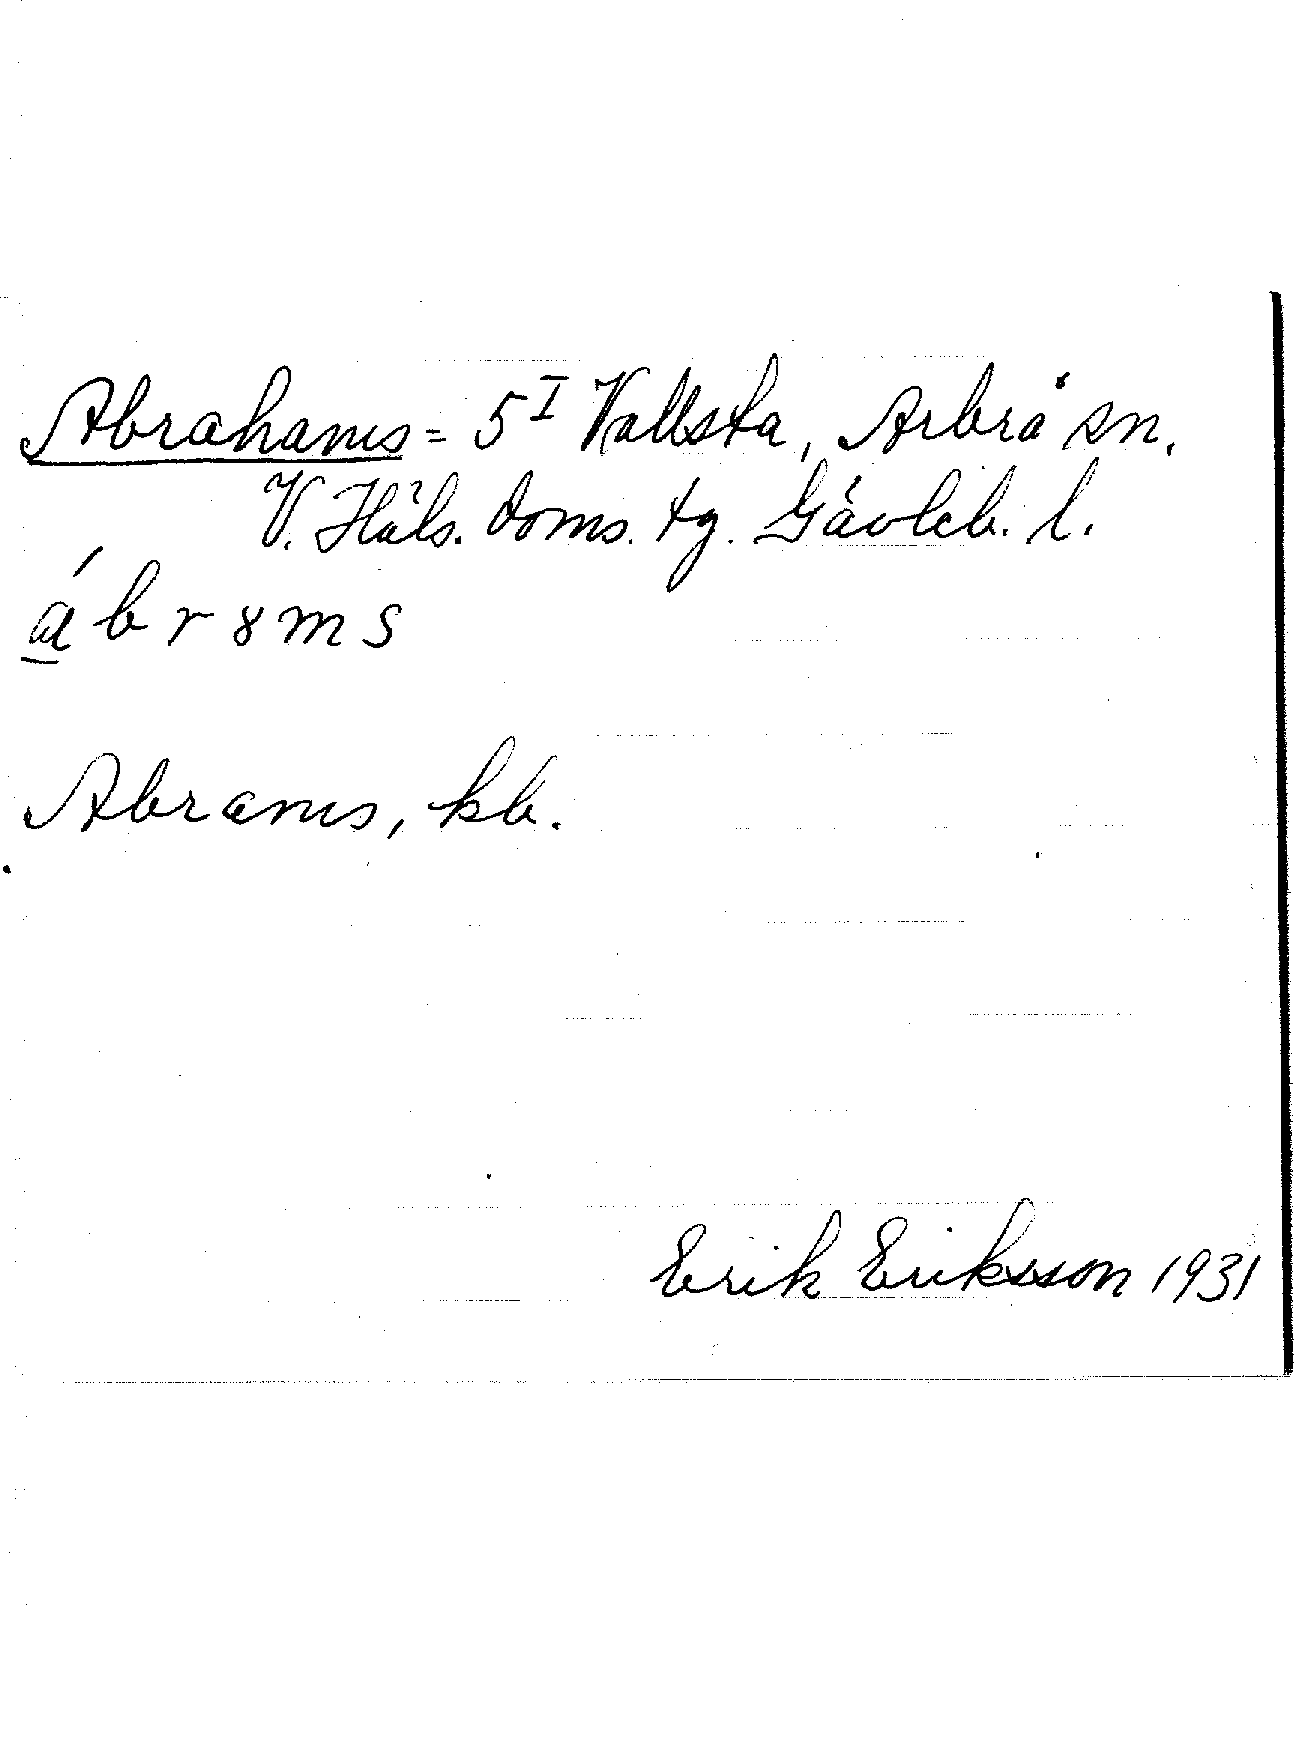 Abrahams = 5^I Vallsta, Arbrå sn.
V. Häls. doms. tg. Gävleb. l.
á̱ b r ɤ m s
Abrams, kb.
Erik Eriksson 1931